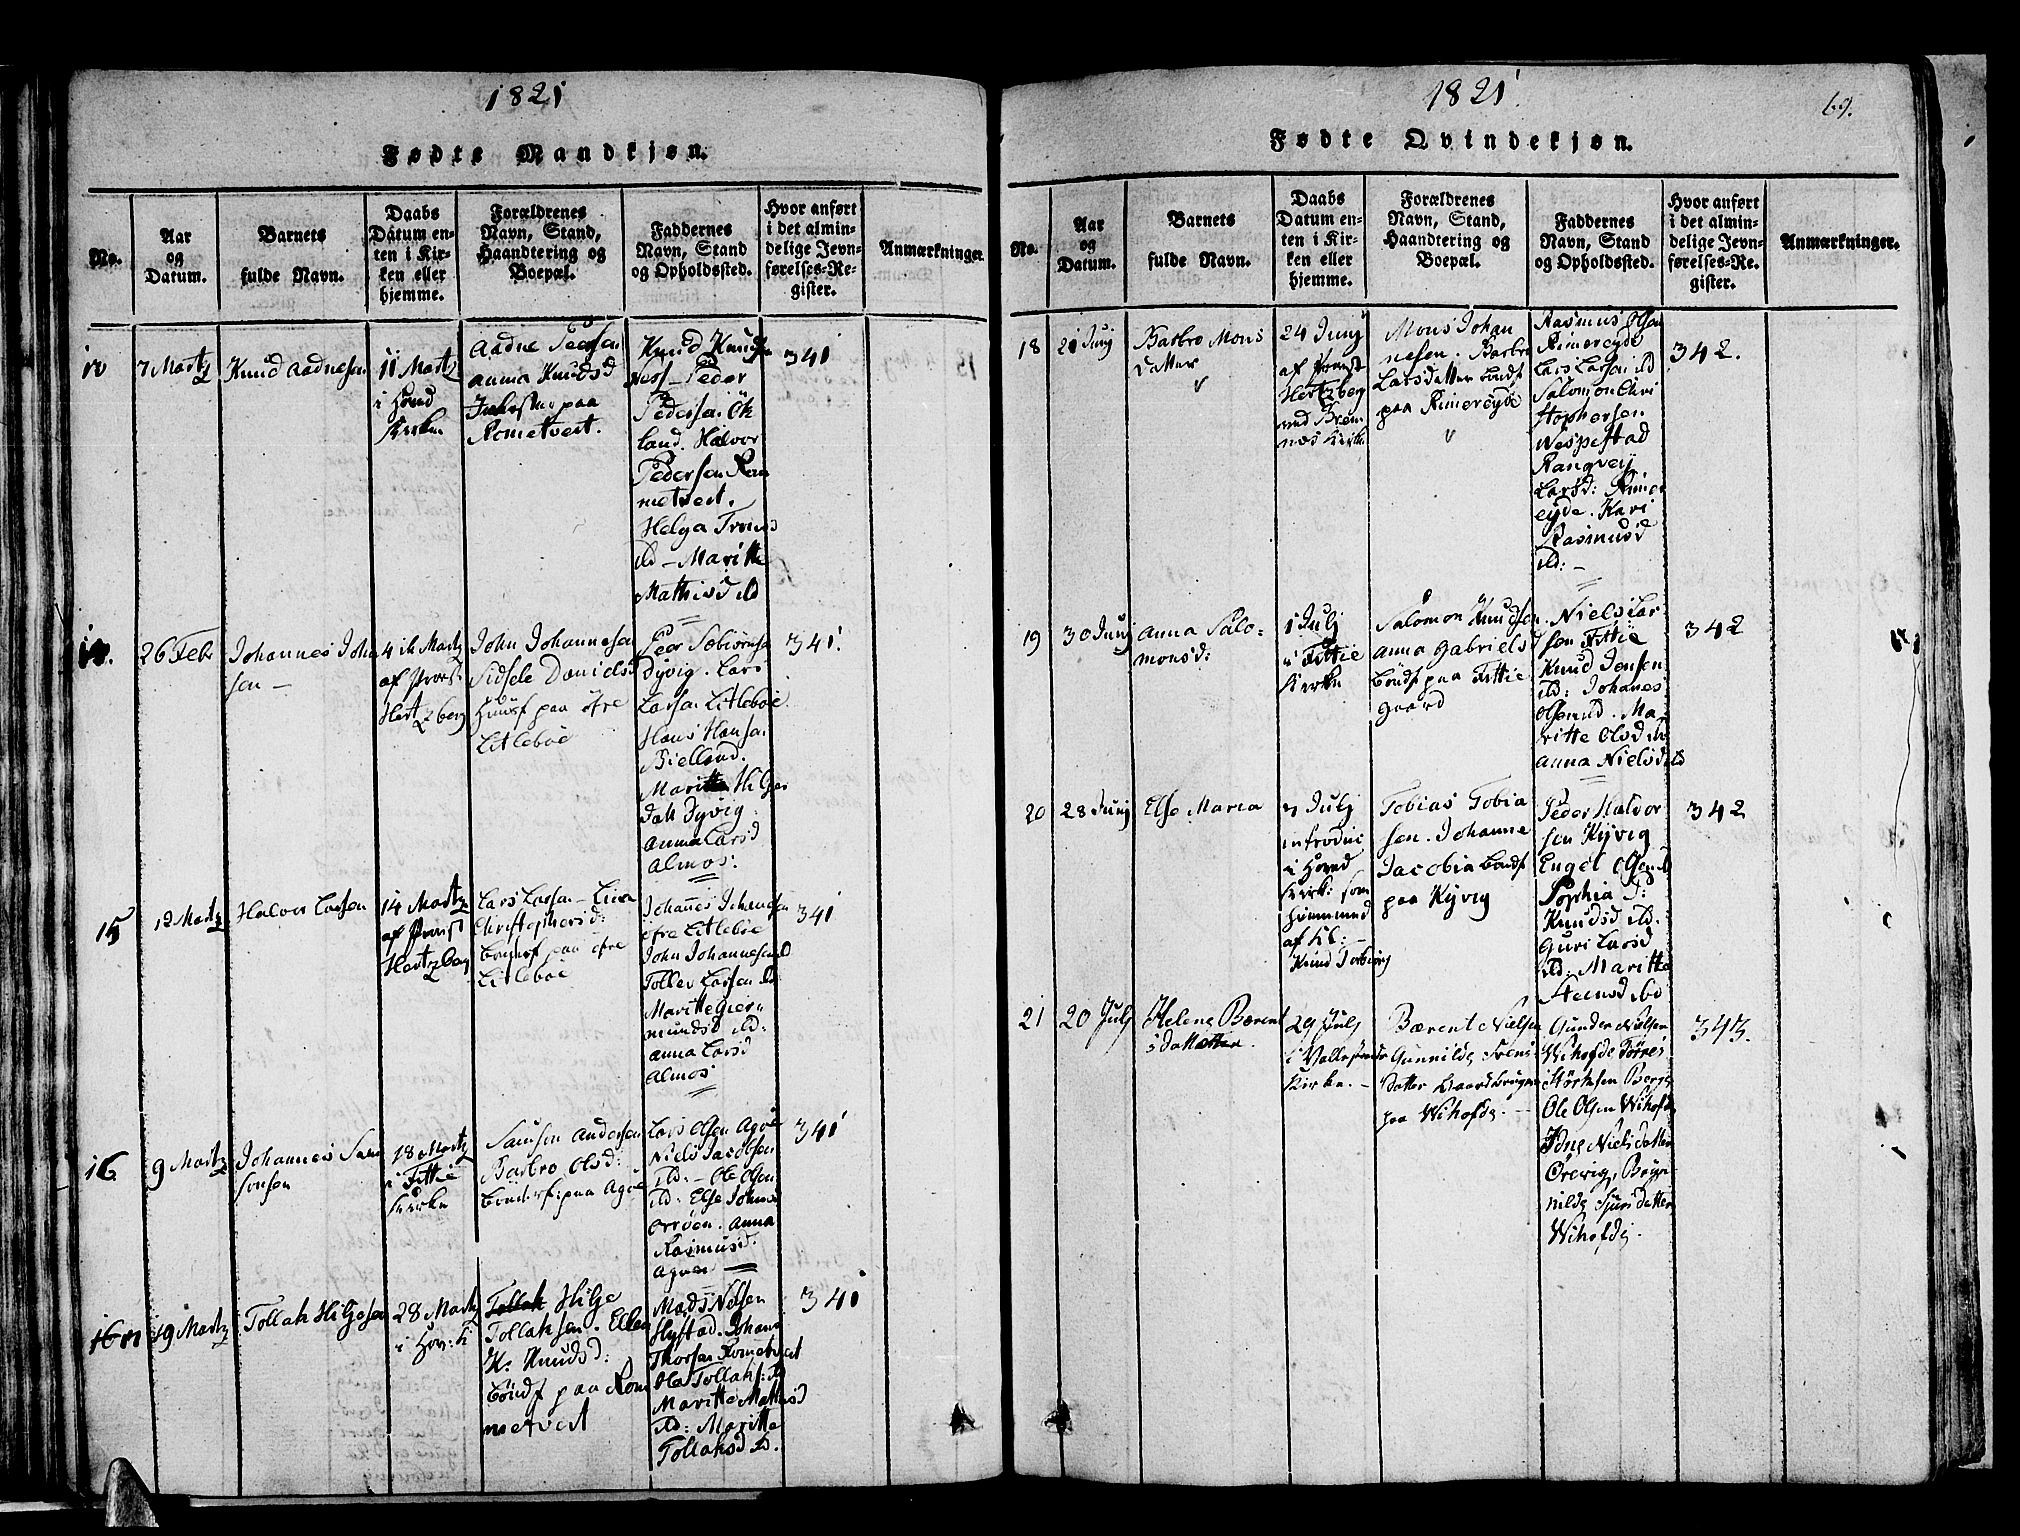 1821
Fødte Mandkjøn.
No.
Aar
og
Datum.
Barnets
fulde Navn.
Daabs
Datum en-
ten i Kir-
ken eller
hjemme.
Forældrenes
Navn, Stand,
Haandtering og
Boepæl.
Faddernes
Navn, Stand
og Opholdssted.
Hvor anført
i det almin-
delige Jevn-
førelses-Re-
gister.
Anmærkninger
7 Martz
Knud Aadnesen
11 Martz
i Hoved
Kirken
Aadne Peersen
Anna Knudsd
paa
Rometvert.
Knud Knuds
Ness - Peder
Pedersen Øk
land. Halvor
Pedersen Rom
metvert.
Helga
ibd - Maritte
Mathisd ibd
341
26 Febr
Johannes Joh
sen -
4de Martz
af Provst
Hertzberg
John Johannesen
Sidsele Danielsd
Huusf paa øfre
Litleboe
Peer
Dyvig. Lars
Larsen Litleboe
Hans Hansen
Bielland.
Maritte Hilges
datt Dyvig.
Anna Larsd
Almos:
341
15
12 Martz
Halvor Larsen
14 Martz
af Provst
Hertzberg
Lars Larsen -
Christophersd:
paa øfre
Litleboe
Johannes Johannesen
øfre Litleboe
John Johannesen ibd
Tollev Larsen ibd
Maritte Gier-
mundsd ibd:
Anna Larsd
Almos
341
16
9 Martz
Johannes Sam
sonsen
18 Martz
i Fittie
Kirke
Samson Andersen
Barbro Olsd:
Bönderf: paa Agoe
Lars Olsen Agoe
Niels Jacobsen
ibd: - Ole Olsen
ibd: Else Johns
Anna
Rasmusd.
341
19 Martz
Tollak Hilgesen
28 Martz
i Hov: K
Tollak Hilge
Tollaksen. Ellen
K: Knudsd:
Böndf paa Rom
metvert
Mads Nilsen
Hystad. Johan
Thorsen Rometvet
Ole Tollaks: ibd
Maritte Mathisd
ibd: Maritte
Tollaksd ib.
341
1821
69.
Fødte Qvindekjøn.
No.
Aar
og
Datum.
Barnets
fulde Navn.
Daabs
Datum en-
ten i Kir-
ken eller
hjemme.
Forældrenes
Navn, Stand,
Haandtering og
Boepæl.
Faddernes
Navn, Stand
og Opholdssted.
Hvor anført
i det almin-
delige Jevn-
førelses-Re-
gister.
Anmærkninger.
18
21 Junj
Barbro Mons
datter
24 Junj
af Provst
Hertzberg
ved Brem
næs Kirke
Mons Johan
nesen. Barbro
Larsdatter böndf
paa Rimereyde
Rasmus Olsen
Rimereyde
Lars Larsen ibd
Salomon Chri
stophersen
Nespestad
Rangvey
Larsd: Rimer
eyde. Kari
Rasmusd
ibd: -
342.
19
30 Junj
Anna Salo-
monsd:
1 Julj
i Fittie
Kirke
Salomon Knudsen
Anna Gabrielsd
böndf paa Fittie
Gaard
Niels Lar-
sen Fittie
Knud Jensen
ibd: Johanes
Ma-
ritte Olsd ib
Anna Nielsd ibd
342
20
28 Junj
Else Maria
Julj
introdu
i Hoved
Kirk: som
af Kl:
Knud Torbiörn
Tobias Tobia
sen. Johanne
Jacobia böndf
paa Kyvig
Peder Halvor
sen Kyvig
Engel Olsen ib
Sophia
Knudsd ibd.
Guri Larsd
ibd: Maritte
Steensd ibd
342
21
20 Julj
Helene Bærent
sdatter.
29 Julj
i Vallestrands
Kirke. -
Bærent Nielsen
Gunnilde Svens
datter
paa Wihofde. -
Gunder Nielsen
Wihofde
Ole Olsen Wihofde
Nielsdatter
Ørevig, Bryn-
nilde Sjursdatter
Wihofde.
343.